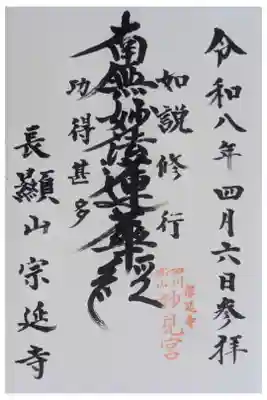 令和八年四月六日参拝
如説修行
南無妙法蓮華経
功得甚多
長顯山宗延寺
妙見宮